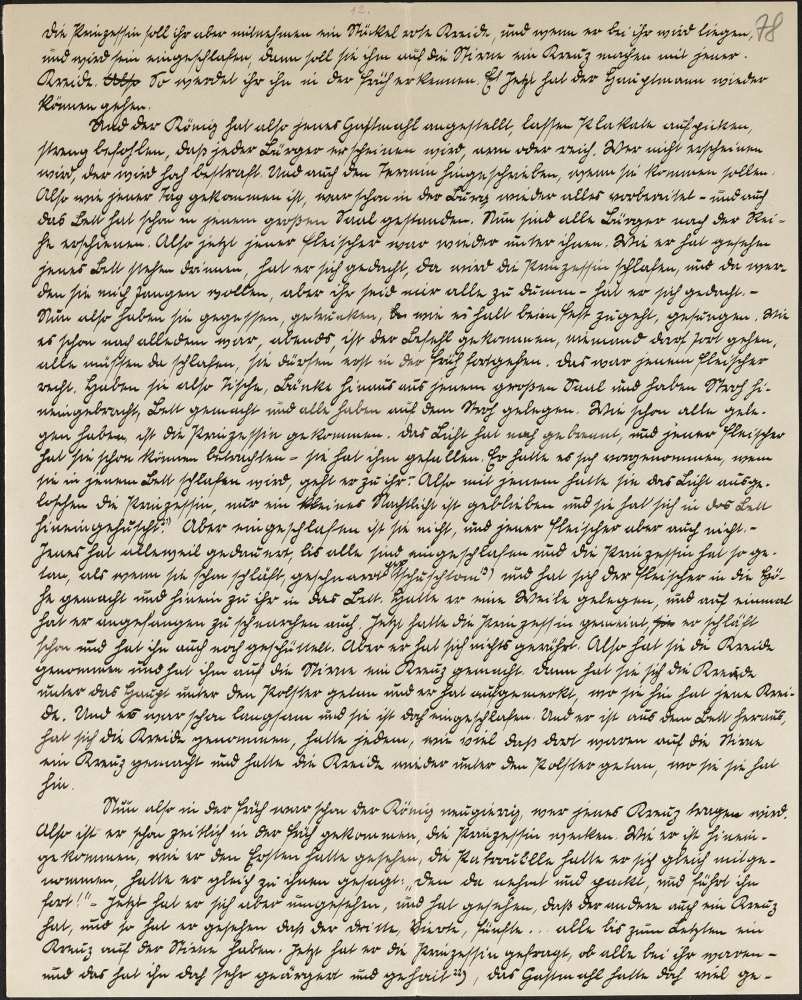 12.
78
die Prinzessin soll ihr aber mitnehmen ein Stückel rote Kreide, und wenn er bei ihr wird liegen,
und wird sein eingeschlafen, dann soll sie ihm auf die Stirne ein Kreuz machen mit jener
Kreide. Also So werdet ihr ihn in der Früh erkennen. Et Jetzt hat der Hauptmann wieder
können gehen.
Und der König hat also jenes Gastmahl angestellt, lassen Plakate aufpicken,
streng befohlen, daß jeder Bürger erscheinen wird, arm oder reich. Wer nicht erscheinen
wird, der wird hoch bestraft. Und auch den Termin hingeschrieben, wenn sie kommen sollen.
Also wie jener Tag gekommen ist, war schon in der Burg wieder alles vorbereitet - und auch
das Bett hat schon in jenem großen Saal gestanden. Nun sind alle Bürger nach der Rei-
he erschienen. Also jetzt jener Fleischer war wieder unter ihnen. Wie er hat gesehen
jenes Bett stehen drinnen, hat er sich gedacht, da wird die Prinzessin schlafen, und da wer-
den sie mich fangen wollen, aber ihr seid mir alle zu dumm - hat er sich gedacht. -
Nun also haben sie gegessen, getrunken, be wie es halt beim Fest zugeht, gesungen. Wie
es schon nach alledem war, abends, ist der Befehl gekommen, niemand darf fort gehen,
alle müssen da schlafen, sie dürfen erst in der Früh fortgehen. Das war jenem Fleischer
recht. Haben sie also Tische, Bänke hinaus aus jenem großen Saal und haben Stroh hi-
neingebracht, Bett gemacht und alle haben auf dem Stroh gelegen. Wie schon alle gele-
gen haben, ist die Prinzessin gekommen. Das Licht hat noch gebrannt, und jener Fleischer
hat sie schon können betrachten - sie hat ihm gefallen. Er hatte es sich vorgenommen, wenn
sie in jenem Bett schlafen wird, geht er zu ihr. - Also mit jenem hatte sie das Licht ausge-
loschen die Prinzessin, nur ein kleines Nachtlicht ist geblieben und sie hat sich in das Bett
hineingehuscht. Aber eingeschlafen ist sie nicht, und jener Fleischer aber auch nicht. -
Jenes hat alleweil gedauert, bis alle sind eingeschlafen und die Prinzessin hat so ge-
tan, als wenn sie schon schläft, geschnarcht und hat sich der Fleischer in die Hö-
he gemacht und hinein zu ihr in das Bett. Hatte er eine Weile gelegen, und auf einmal
hat er angefangen zu schnarchen auch. Jetzt hatte die Prinzessin gemeint, er schläft
schon und hat ihn auch noch geschüttelt. Aber er hat sich nichts gerührt. Also hat sie die Kreide
genommen und hat ihm auf die Stirne ein Kreuz gemacht. Dann hat sie sich die Kreide
unter das Haupt unter den Polster getan und er hat aufgemerkt, wo sie hin hat jene Krei-
de. Und es war schon langsam und sie ist doch eingeschlafen. Und er ist aus dem Bett heraus,
hat sich die Kreide genommen, hatte jedem, wie viel daß dort waren auf die Stirne
ein Kreuz gemacht und hatte die Kreide wieder unter den Polster getan, wo sie sie hat
hin.
Nun also in der Früh war schon der König neugierig, wer jenes Kreuz tragen wird.
Also ist er schon zeitlich in der Früh gekommen, die Prinzessin wecken. Wie er ist hinein-
gekommen, wie er den Ersten hatte gesehen, die Patroullle hatte er sich gleich mitge-
nommen, hatte er gleich zu ihnen gesagt: "Den da nehmt und packt, und führt ihn
fort!" - Jetzt hat er sich aber umgesehen, und hat gesehen, daß der andere auch ein Kreuz
hat, und so hat er gesehen daß der dritte, vierte, fünfte... alle bis zum Letzten ein
Kreuz auf der Stirne haben. Jetzt hat er die Prinzessin gefragt, ob alle bei ihr waren -
und das hat ihn doch sehr geärgert und geheit, das Gastmahl hatte doch viel ge-